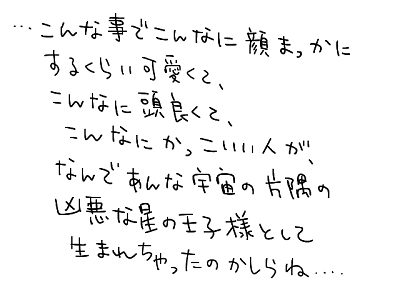 …こんな事でこんなに顔まっかに
するくらい可愛くて、
こんなに頭良くて、
こんなにかっこいい人が、
なんであんな宇宙の片隅の
凶悪な星の王子様として
生まれちゃったのかしらね‥‥